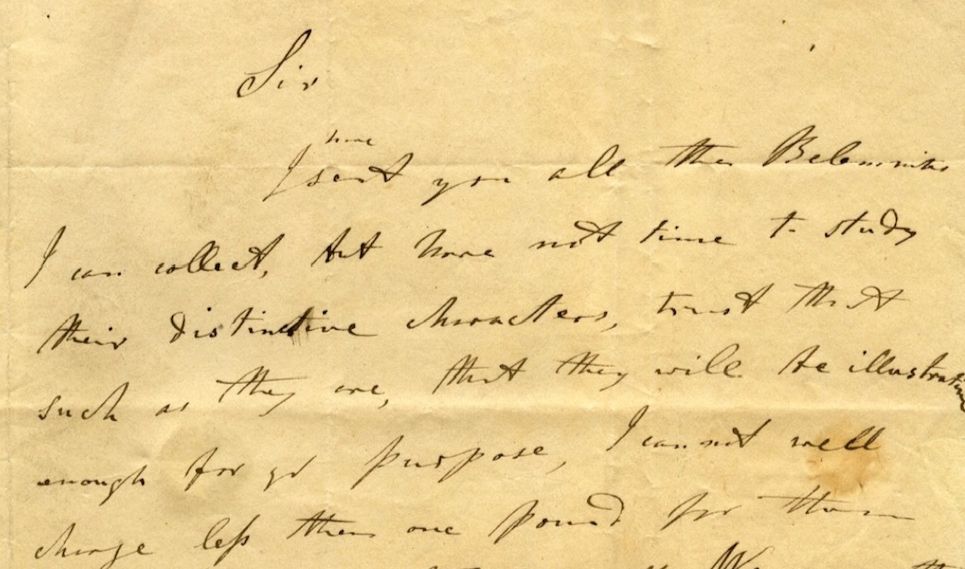 Sir
have
I sent you all the Belemnites
I can collect, but have not time to study
their distinctive characters, trust that
such as they are, that they will be illustrative
enough for yr purpose, I cannot well
charge leſs then one pound for them